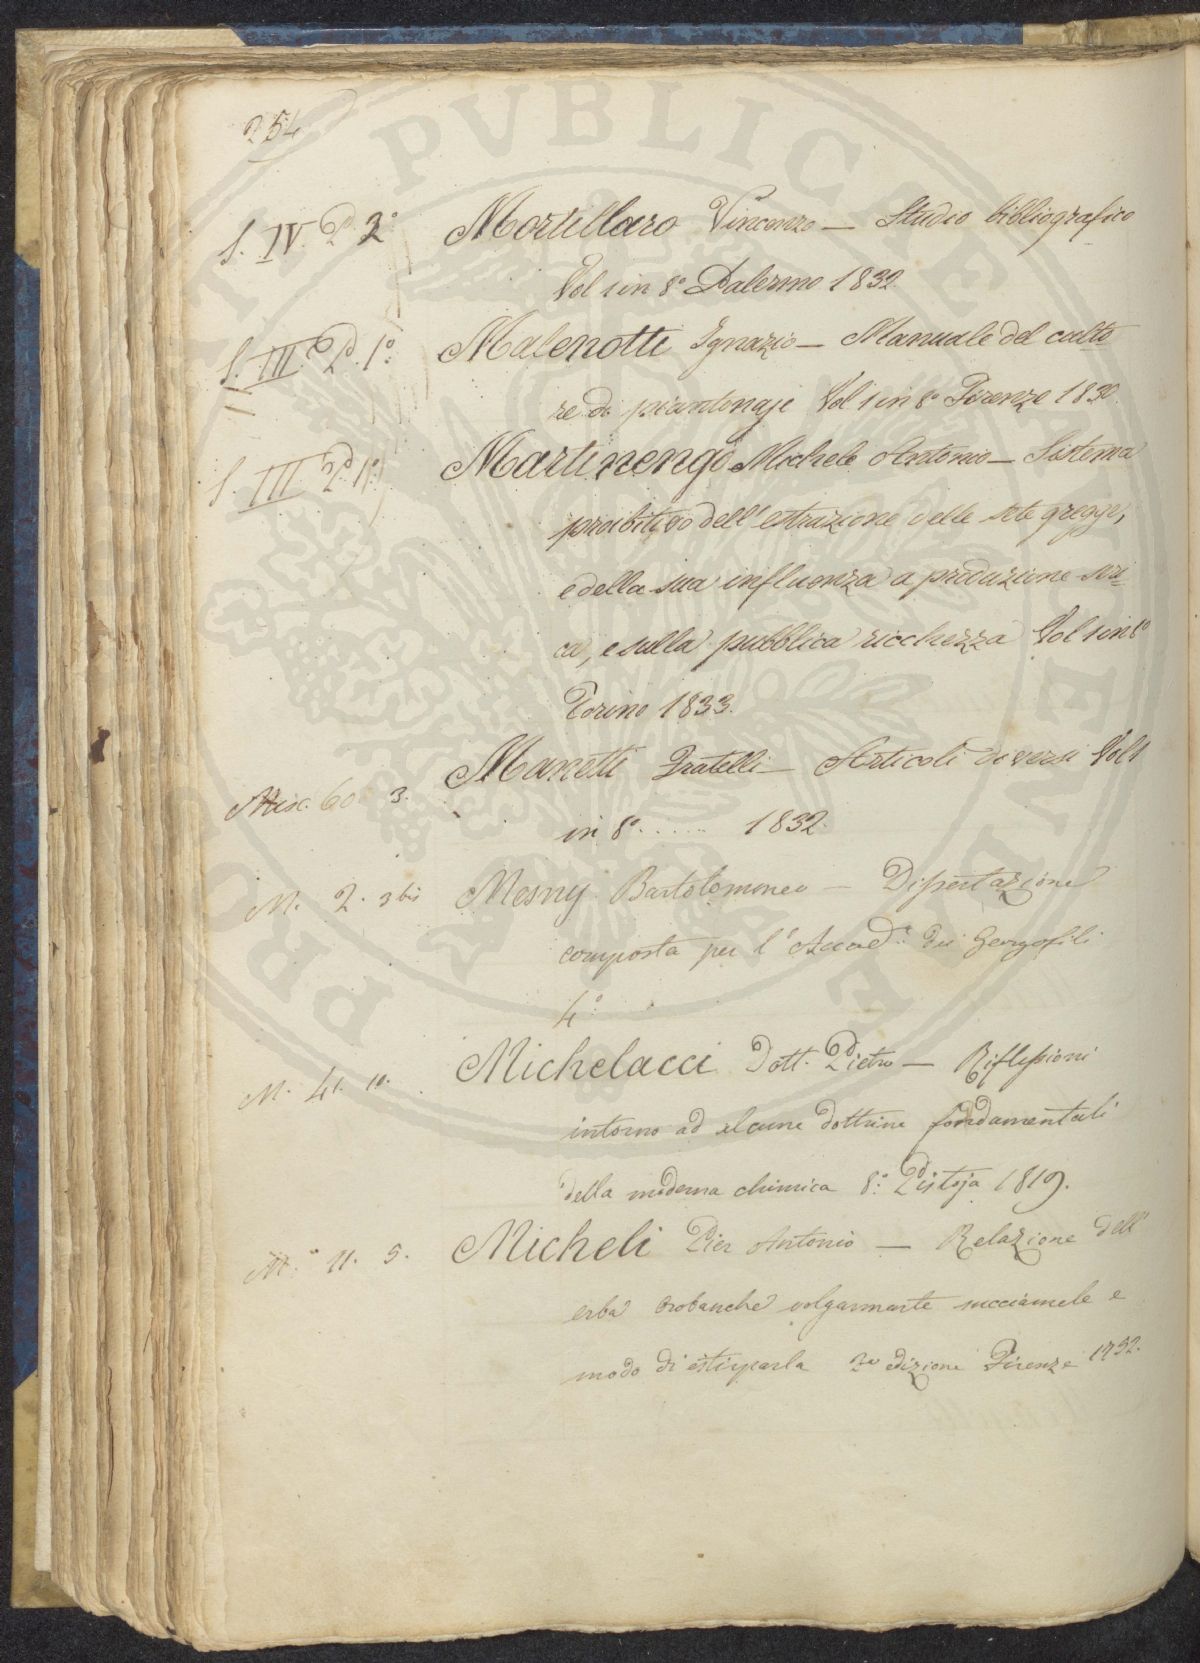 254
S. IV. P. 2.° Mortillaro Vincenzo — Studio bibliografico
Vol 1 in 8° Palermo 1832
S. III. P. 1.° Malenotti Ignazio — Manuale del culto
re di piantonaje Vol 1 in 8° Firenze 1830.
S. III P. 1.° Martinengo Michele Antonio — Sistema
proibitivo dell' estrazione delle sete gregge,
e della sua influenza a produzione seri=
ca, e sulla pubblica ricchezza Vol 1 in 8°
Torino 1833.
Misc. 60 3. Manetti Fratelli — Articoli diversi Vol 1
in 8° ...... 1832.
M. 2. 3 bis Mesny Bartolommeo — Dissertazione
composta per l' Accad.ª dei Gergofili
4°
M. 41. 10. Michelacci Dott. Pietro — Riflessioni
intorno ad alcune dottrine fondamentali
della moderna chimica 8.° Pistoja 1819.
M. 11. 5. Micheli Pier Antonio — Relazione dell'
erba orobanche volgarmente succiamele e
modo di estirparla 2ª edizione Firenze
PUBLICAE